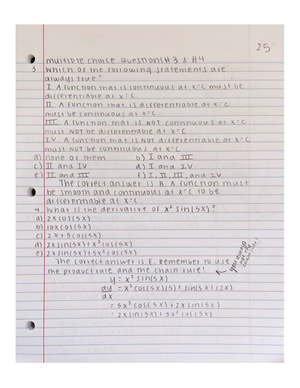 25
multiple choice questions #3 & #4
3. Which of the following statements are
always true?
I. A function that is continuous at x=c must be
differentiable at x=c
II. A function that is differentiable at x=c
must be continuous at x=c
III. A function that is not continuous at x=c
must not be differentiable at x=c
IV. A function that is not differentiable at x=c
must not be continuous at x=c
a) none of them b) I and III
c) II and IV d) I and IV
e) II and III f) I, II, III, and IV
The correct answer is B. A function must
be smooth and continuous at x=c to be
differentiable at x=c
4. What is the derivative of x² sin(5x)?
a) 2x cos(5x)
b) 10x cos(5x)
c) 2x + 5 cos(5x)
d) 2x sin(5x) + x² cos(5x)
e) 2x sin(5x) + 5x² cos(5x)
The correct answer is E. Remember to use
the product rule and the chain rule!
y = x² sin(5x)
dy/dx = x² cos(5x)(5) + sin(5x)(2x)
= 5x² cos(5x) + 2x sin(5x)
= 2x sin(5x) + 5x² cos(5x)